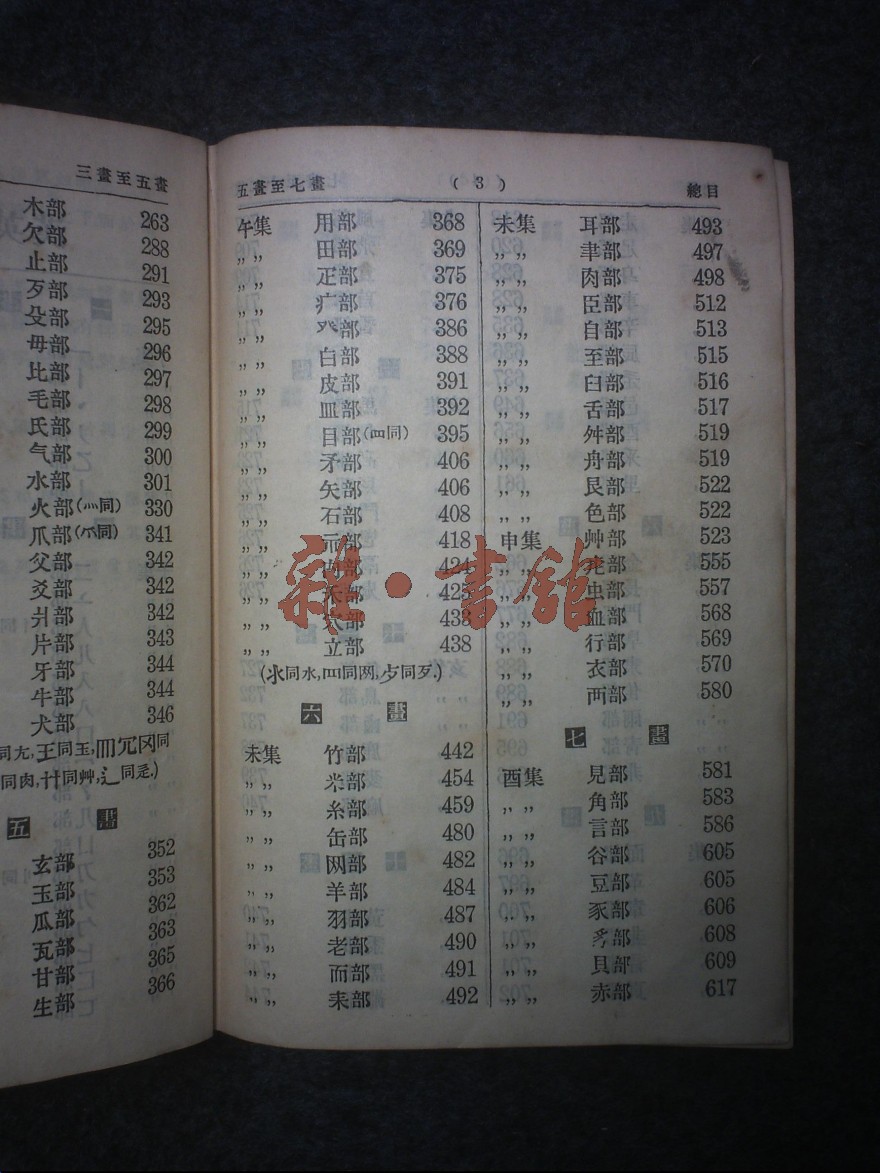 三畫至五畫
木部 263
欠部 288
止部 291
歹部 293
殳部 295
毋部 296
比部 297
毛部 298
氏部 299
气部 300
水部 301
火部(灬同) 330
爪部(爫同) 341
父部 342
爻部 342
爿部 342
片部 343
牙部 344
牛部 344
犬部 346
同尢,王同玉,罒冗冈同
同肉,艹同艸,辶同辵.)
五 畫
玄部 352
玉部 353
瓜部 362
瓦部 363
甘部 365
生部 366
五畫至七畫 ( 3 ) 總目
午集 用部 368
〃〃 田部 369
〃〃 疋部 375
〃〃 疒部 376
〃〃 癶部 386
〃〃 白部 388
〃〃 皮部 391
〃〃 皿部 392
〃〃 目部(罒同) 395
〃〃 矛部 406
〃〃 矢部 406
〃〃 石部 408
〃〃 示部 418
〃〃 禸部 424
〃〃 禾部 425
〃〃 穴部 433
〃〃 立部 438
(氺同水,罒同网,歺同歹.)
六 畫
未集 竹部 442
〃〃 米部 454
〃〃 糸部 459
〃〃 缶部 480
〃〃 网部 482
〃〃 羊部 484
〃〃 羽部 487
〃〃 老部 490
〃〃 而部 491
〃〃 耒部 492
未集 耳部 493
〃〃 聿部 497
〃〃 肉部 498
〃〃 臣部 512
〃〃 自部 513
〃〃 至部 515
〃〃 臼部 516
〃〃 舌部 517
〃〃 舛部 519
〃〃 舟部 519
〃〃 艮部 522
〃〃 色部 522
申集 艸部 523
〃〃 虍部 555
〃〃 虫部 557
〃〃 血部 568
〃〃 行部 569
〃〃 衣部 570
〃〃 襾部 580
七 畫
酉集 見部 581
〃〃 角部 583
〃〃 言部 586
〃〃 谷部 605
〃〃 豆部 605
〃〃 豕部 606
〃〃 豸部 608
〃〃 貝部 609
〃〃 赤部 617
雜·書館